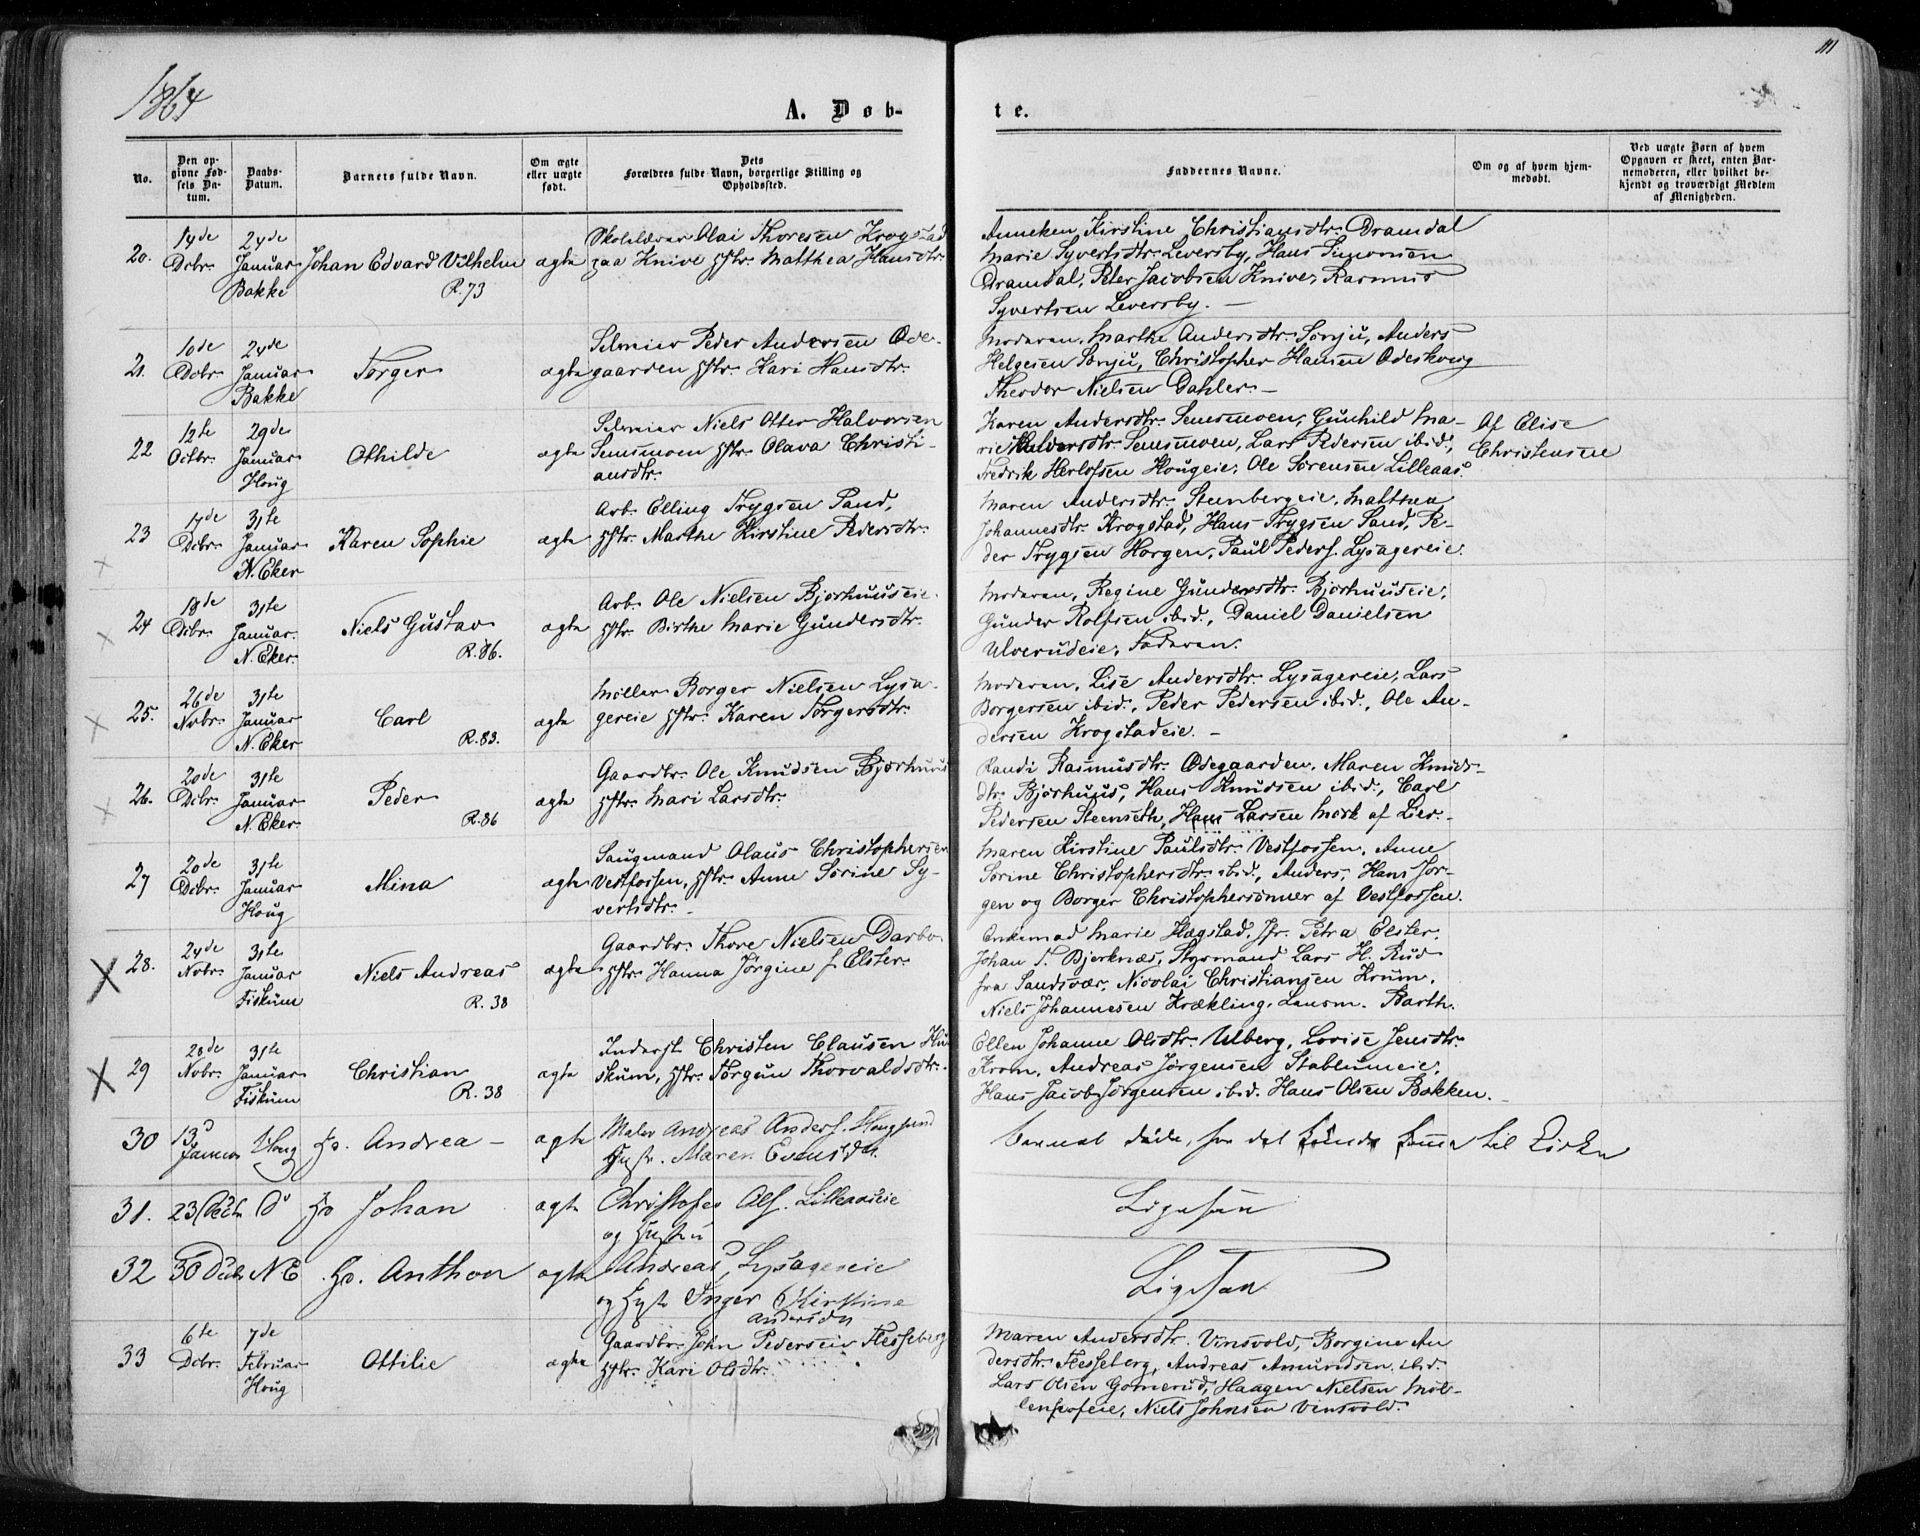 111
1864
A. Døb-
te.
No.
Den op-
givne Fød-
sels Da-
tum.
Daabs-
Datum.
Barnets fulde Navn.
Om ægte
eller uægte
født.
Dets
Forældres fulde Navn, borgerlige Stilling og
Opholdssted.
Faddernes Navne.
Om og af hvem hjem-
medøbt.
Ved uægte Børn af hvem
Opgaven er skeet, enten Bar-
nemoderen, eller hvilket be-
kjendt og troværdigt Medlem
af Menigheden.
20.
14de
Dcbr.
24de
Januar
Bakke
Johan Edvard Vilhelm
R. 73
ægte
Skolelærer Olai Thoresen Krogstad
paa Knive Hstr. Matthea Hansdtr.
Anneken Kirstine Christiansdtr. Dramdal
Marie Syvertsdtr. Leversby, Hans Simonsen
Dramdal, Peter Jacobsen Knive, Rasmus
Syvertsen Leversby. —
21.
10de
Dcbr.
24de
Januar
Bakke
Torger
ægte
Selveier Peder Andersen Øde-
gaarden Hstr. Kari Hansdtr.
Moderen, Marthe Andersdtr. Sønju, Anders
Helgesen Sønju, Christopher Hansen Ødeskoug
Theodor Nielsen Dahler. —
22
12te
Octbr.
29de
Januar
Houg
Othilde
ægte
Selveier Niels Otter Halvorsen
Semsmoen Hstr. Olava Christi-
ansdtr.
Karen Andersdtr. Semsmoen, Gunhild Ma-
rie Halvorsdtr. Semsmoen, Lars Pedersen ibid.,
Fredrik Herlofsen Hougeie, Ole Sørensen Lilleaas.
Af Elise
Christensen
23
17de
Dcbr.
31te
Januar
N. Eker
Karen Sophie
ægte
Arb. Elling Trygsen Sand,
Hstr. Marthe Kirstine Pedersdtr.
Maren Andersdtr. Steenbergeie, Matthea
Johannesdtr. Krogstad, Hans Trygsen Sand, Pe-
der Trygsen Horgen, Paul Peders. Lysagereie.
24
18de
Dcbr.
31te
Januar
N. Eker.
Niels Gustav
R. 86.
ægte
Arb. Ole Nielsen Bjørhuuseie.
Hstr. Birthe Marie Gundersdtr.
Moderen, Regine Gundersdtr. Bjørhuuseie,
Gunder Rolfsen ibid., Daniel Danielsen
Ulverudeie, Faderen.
25.
26de
Novbr.
31te
Januar
N. Eker
Carl
R. 83.
ægte
Møller Borger Nielsen Lysa-
gereie Hstr. Karen Torgersdtr.
Moderen, Lise Andersdtr. Lysagereie, Lars
Borgersen ibid., Peder Pedersen ibid., Ole An-
dersen Krogstadeie. —
26.
20de
Dcbr.
31te
Januar
N. Eker
Peder
R. 86
ægte
Gaardbr. Ole Knudsen Bjørhuus
Hstr. Mari Larsdtr.
Randi Rasmusdtr. Ødegaarden, Maren Knuds-
dtr. Bjørhuus, Hans Knudsen ibid., Carl
Pedersen Steenseth, Hans Larsen Mørk af Lier. —
27
20de
Dcbr.
31te
Januar
Houg
Mina
ægte
Saugmand Olaus Christophersen
Vestfossen, Hstr. Anne Sørine Sy-
vertsdtr. —
Maren Kirstine Paulsdtr. Vestfossen, Anne
Sørine Christophersdtr. ibid., Anders, Hans Jør-
gen og Borger Christophersønner af Vestfossen.
28.
24de
Novbr.
31te
Januar
Fiskum
Niels Andreas
R. 38
ægte
Gaardbr. Thore Nielsen Darbo
Hstr. Hanna Jørgine f. Elster
Enkemad Marie Hægstad, Jfr. Petra Elster,
Johan T. Bjørknæs, Styrmand Lars H. Rud
fra Sandsvær, Nicolai Christiansen Krum,
Niels Johannesen Krækling, Barth.
29
20de
Novbr.
31te
Januar
Fiskum
Christian
R. 38
ægte
Inderst Christen Clausen
skum, Hstr. Torgun Thorvaldsdtr.
Ellen Johanne Olsdtr. Ulberg, Lovise Jensdtr.
Krom, Andreas Jørgensen Stablumeie,
Hans Jacob Jørgensen ibid. Hans Olsen Bakken. —
30
13
Januar
Houg
Andrea —
ægte
Maler Andreas Anders. Hougsund
Hustr. Maren Evensdtr.
Barnet døde, før det kunde komme til Kirke
31.
23 Decbr.
D
Johan
ægte
Christofer Ols. Lilleaaseie
og Hustru
Ligesaa
32
30 Decbr.
N E
Anthon
ægte
Andreas Lysagereie
og Hustr. Inger Kirstine
Andersdtr.
Ligesaa
33
6te
Dcbr.
7de
Februar
Houg
Ottilie
ægte
Gaardbr. John Pedersen Flesseberg
Hstr. Kari Olsdtr.
Maren Andersdtr. Vinsvold, Borgine An-
dersdtr. Flesseberg, Andreas Amundsen ibid.
Lars Olsen Gomerud, Haagen Nielsen Møl-
lenhofeie, Niels Johnsen Vinsvold.